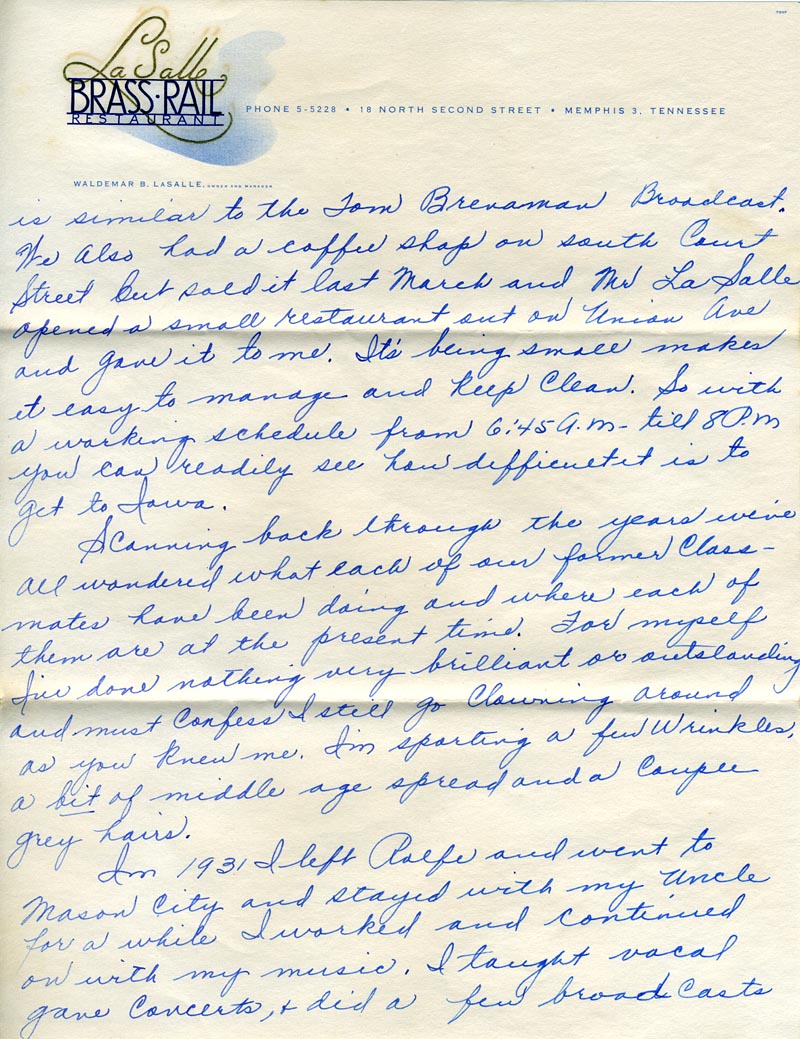 La Salle
BRASS·RAIL
RESTAURANT
PHONE 5-5228 • 18 NORTH SECOND STREET • MEMPHIS 3, TENNESSEE
WALDEMAR B. LASALLE, OWNER AND MANAGER
is similar to the Tom Brenaman Broadcast.
We Also had a coffee shop on south Court
Street but sold it last March and Mr La Salle
opened a small restaurant out on Union Ave
and gave it to me. It's being small makes
it easy to manage and keep Clean. So with
a working schedule from 6:45 A.M - till 8 P.M
you can readily see how difficult it is to
get to Iowa.
Scanning back through the years we've
all wondered what each of our former Class-
mates have been doing and where each of
them are at the present time. For myself
I've done nothing very brilliant or outstanding
and must Confess I still go Clowning around
as you knew me. I'm sporting a few Wrinkles,
a bit of middle age spread and a Couple
grey hairs.
In 1931 I left Rolfe and went to
Mason City and stayed with my Uncle
for a while I worked and continued
on with my music. I taught vocal
gave Concerts, + did a few broad Casts